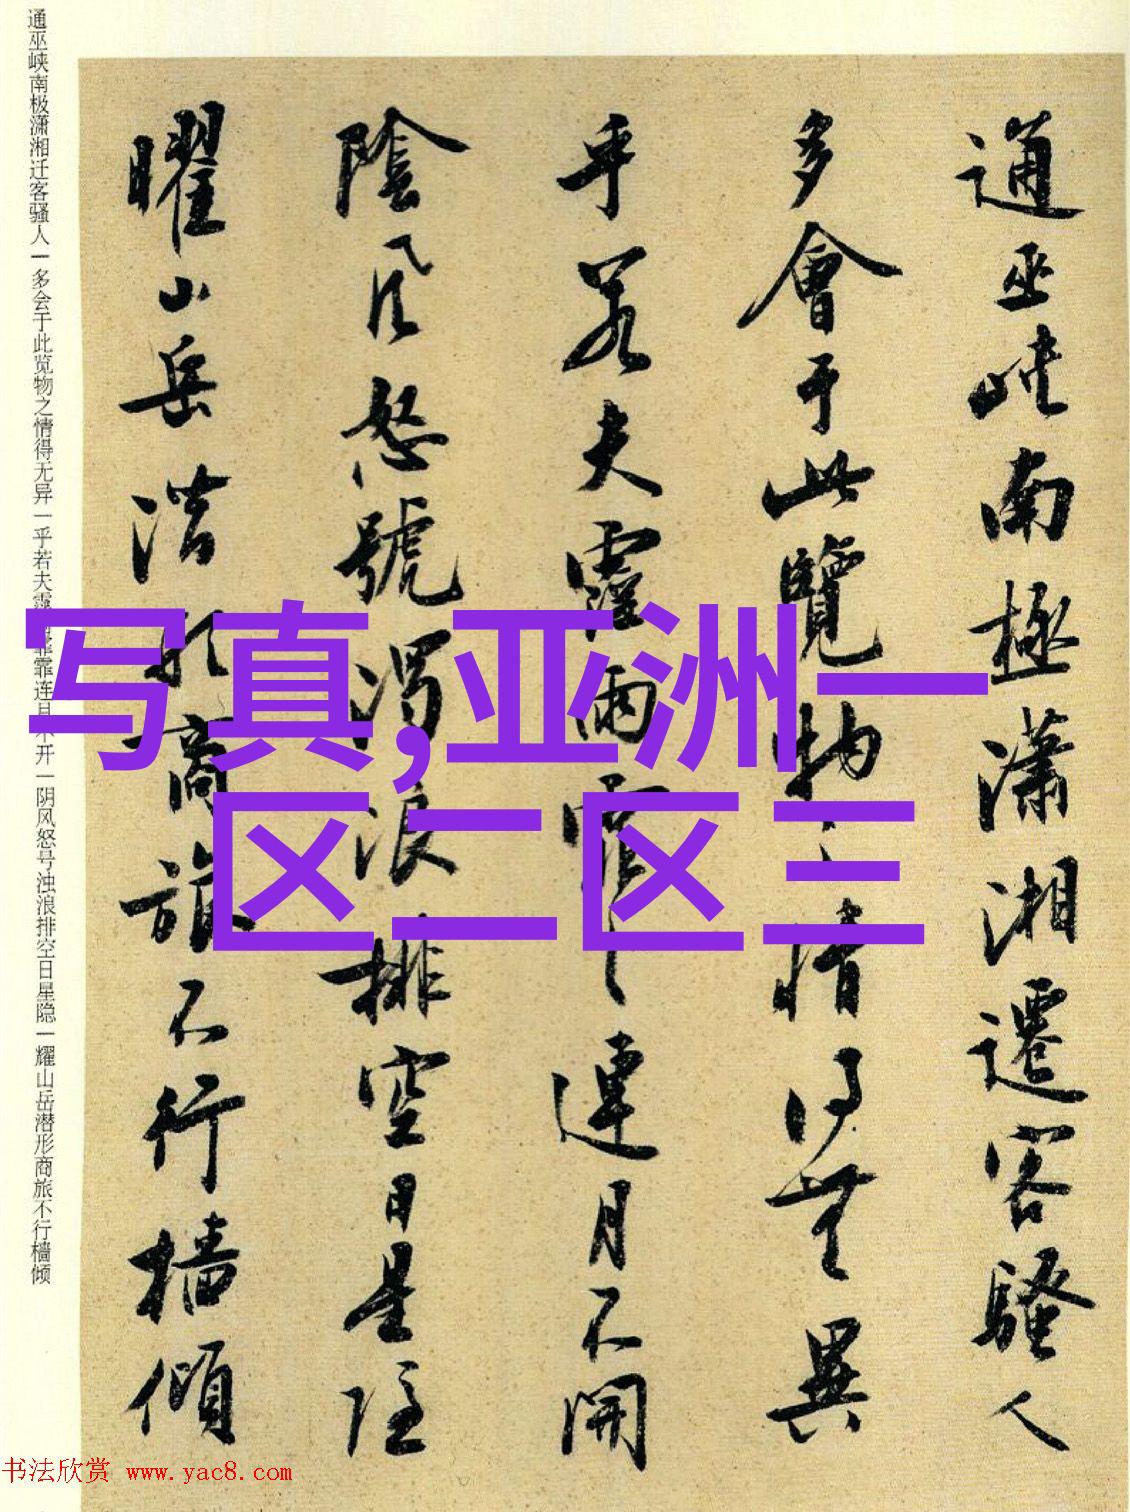 通巫峡南極瀟湘遷客騷人
多會于此覽物之情得無異
乎若夫霪雨霏霏連月不開
陰風怒號濁浪排空日星隱
曜山岳潜形商旅不行檣傾
通巫峡南极潇湘迁客骚人一多会于此览物之情得无异一乎若夫霪雨霏霏连月不开一阴风怒号浊浪排空日星隐一耀山岳潜形商旅不行樯倾
写真,亚洲一
区二区三
书法欣赏 www.yac8.com